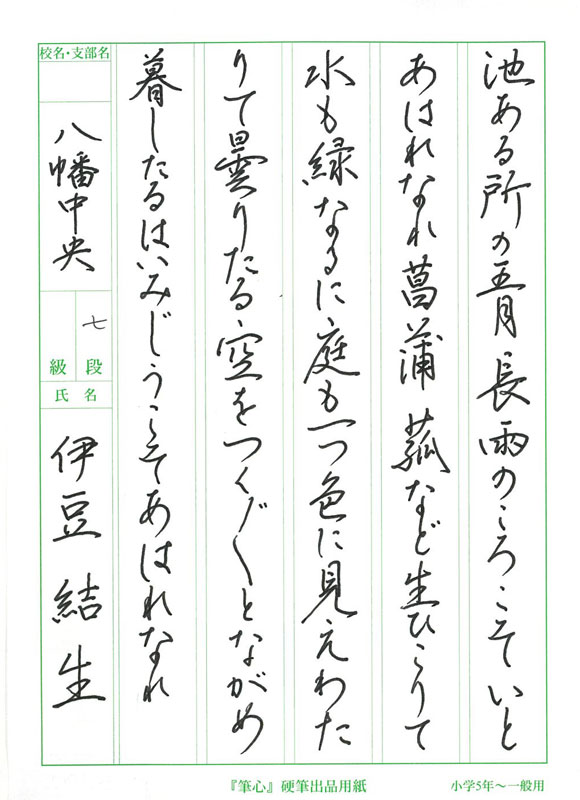 池ある所の五月長雨のころこそいと
あはれなれ菖蒲菰など生ひこりて
水も緑なるに庭も一つ色に見えわた
りて曇りたる空をつくづくとながめ
暮したるはいみじうこそあはれなれ
校名・支部名
八幡中央
七
段
級
氏名
伊豆結生
『筆心』硬筆出品用紙
小学5年〜一般用